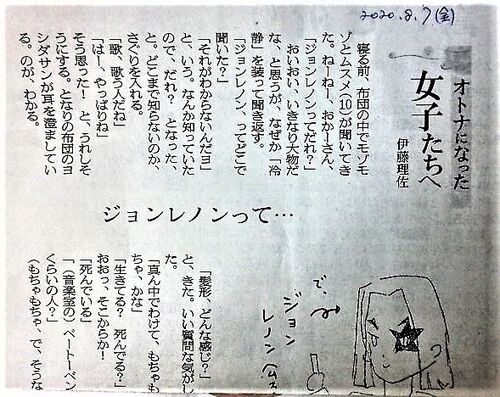 2020.8.7(金)
オトナになった
女子たちへ
伊藤理佐
ジョンレノンって…
寝る前、布団の中でモゾモ
ゾとムスメ(10)が聞いてき
た。ねーねー、おかーさん、
「ジョンレノンってだれ?」
おいおい、いきなり大物だ
な、と思うが、なぜか「冷
静」を装って聞き返す。
「ジョンレノン、ってどこで
聞いた?」
「それがわからないんだヨ」
と、いう。なんか知っていた
ので、だれ?となった、
と。どこまで知らないのか、
さぐりを入れる。
「歌、歌う人だね」
「はー、やっぱりね」
そう思った!と、うれしそ
うにする。となりの布団のヨ
シダサンが耳を澄ましてい
る。のが、わかる。
「髪形、どんな感じ?」
と、きた。いい質問な気がし
た。
「真ん中でわけて、もちゃも
ちゃ、かな」
「生きてる?死んでる?」
おおっ、そこからか!
「死んでいる」
「(音楽室の)ベートーベン
くらいの人?」
(もちゃもちゃ、で、そうな
で、
ジョン
レノン